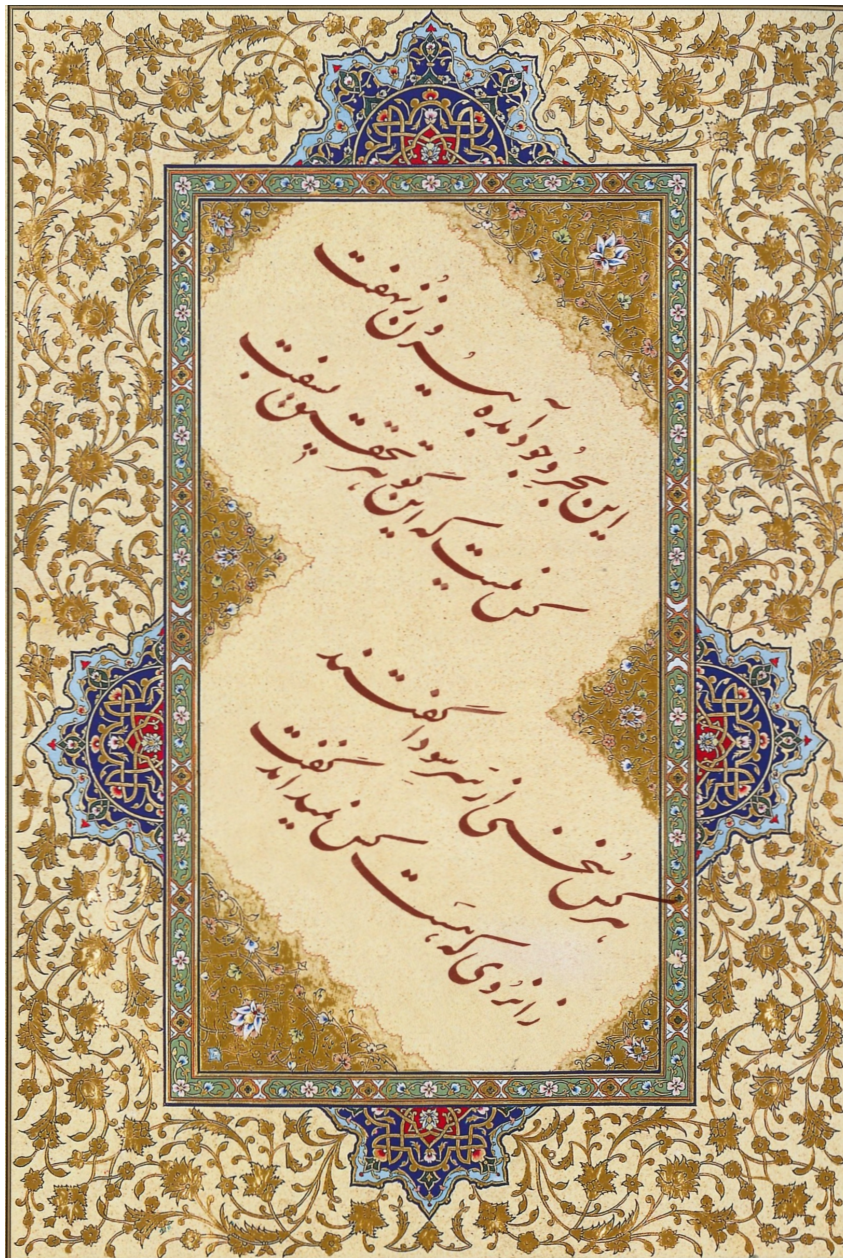 این بحر وجود آمده بیرون ز نهفت
کس نیست که این گوهر تحقیق بسفت
هر کس سخنی از سر سودا گفتند
زانروی که هست کس نمیداند گفت